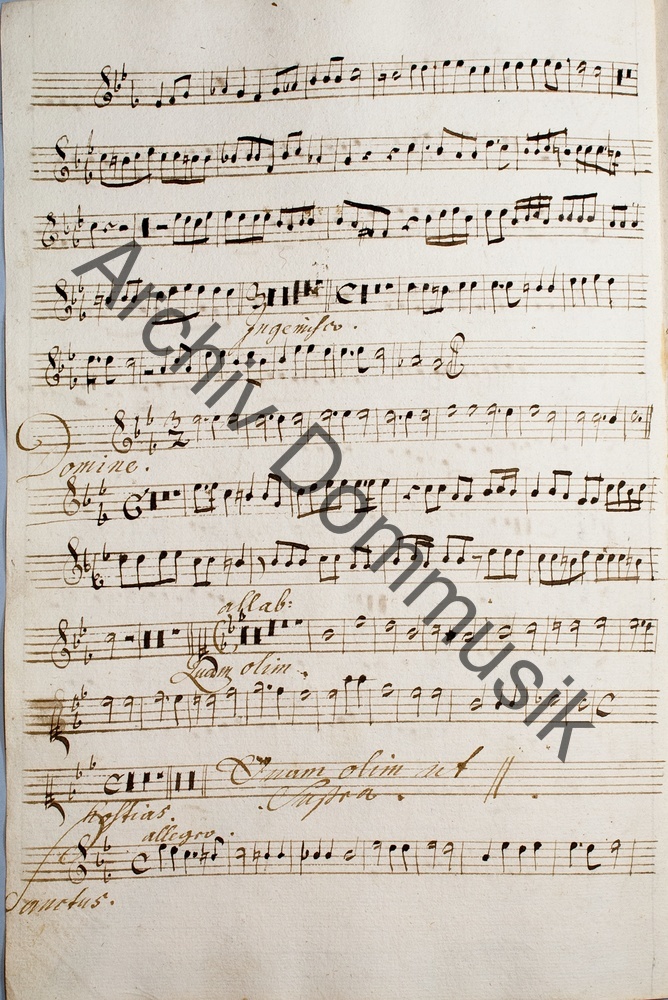 Ingemisco.
Domine.
allab:
Quam olim.
Quam olim ut
Supra.
Hostias.
allegro.
Sanctus.
Archiv Dommusik